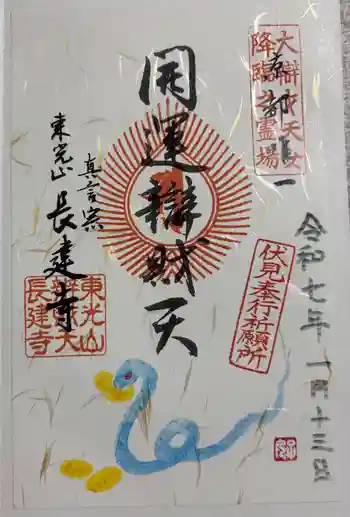 大辯才天女
降臨之霊場
京都唯一
令和七年 一月十三日
伏見奉行祈願所
開運辯財天
真言宗
東光山 長建寺
東光山
辨才天
長建寺